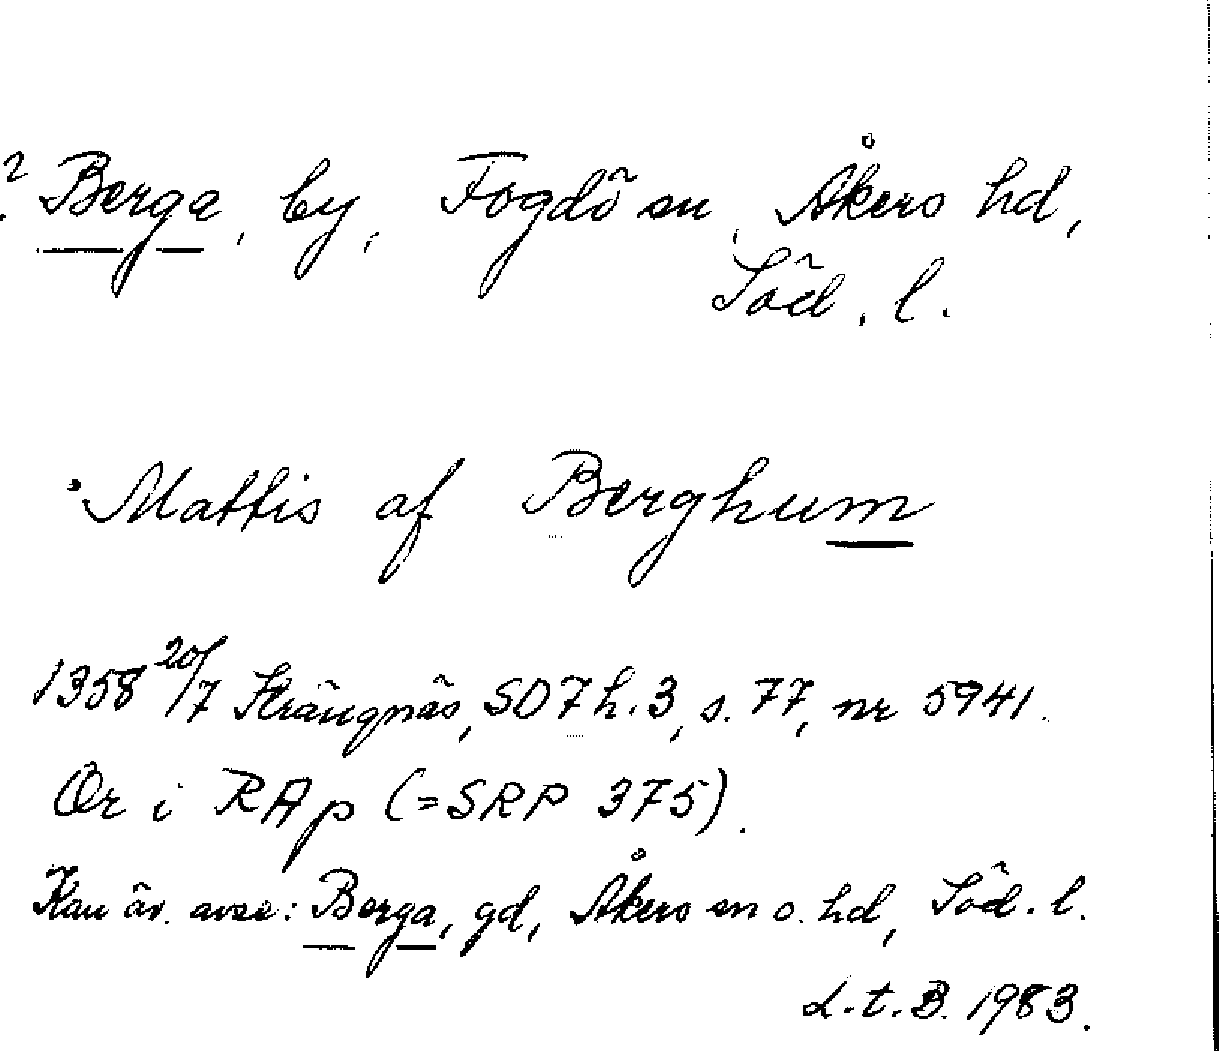 ? Berga, by, Fogdö sn, Åkers hd,
Söd. l.
Mattis af Berghum
1358 20/7 Strängnäs, SD 7 h. 3, s. 77, nr 5941.
Or i RAp (=SRP 375).
Kan äv. avse: Berga, gd, Åkers sn o. hd, Söd. l.
L.t.B. 1983.